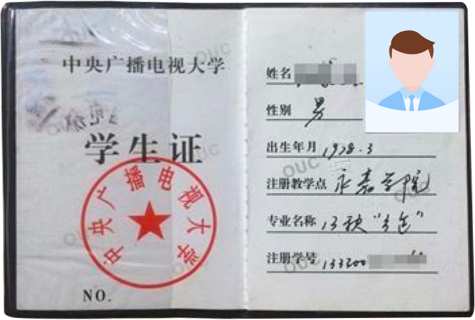 中央广播电视大学
学生证
中央广播电视大学
NO.
OUC
姓名
性别 男
出生年月 1978.3
OUC
注册教学点 永嘉学院
专业名称 13秋"
注册学号 133200